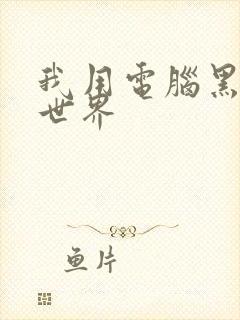 我用電腦黑
世界
魚片